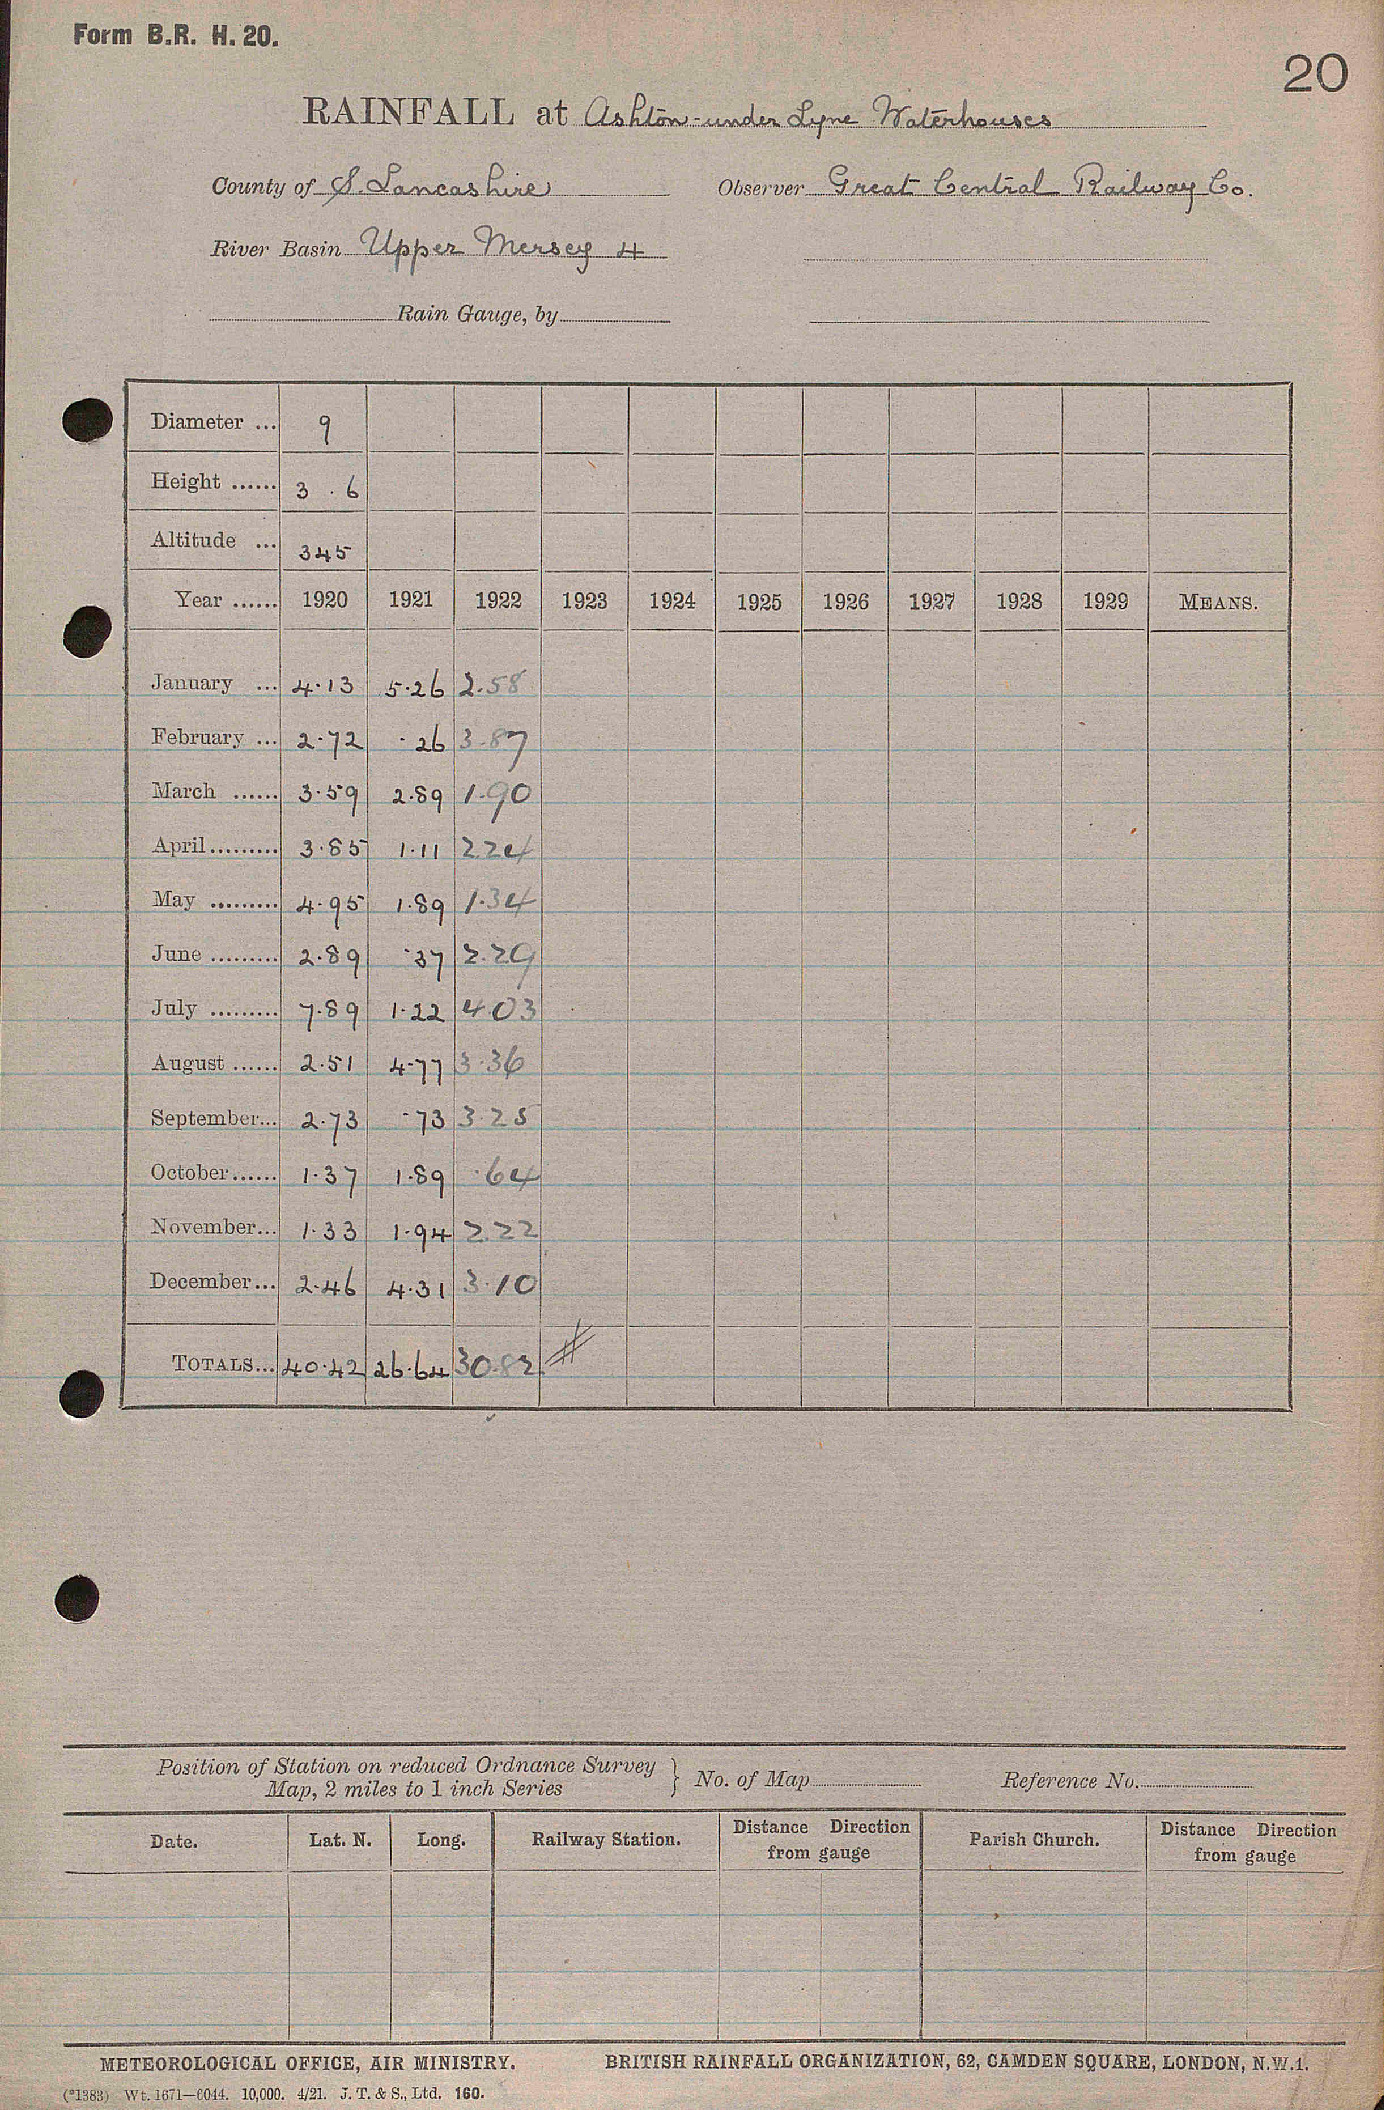 Form B.R. H. 20.
20
RAINFALL at Ashton-under Lyne Waterhouses
County of S. Lancashire Observer Great Central Railway Co.
River Basin Upper Mersey 4
Rain Gauge, by
Diameter ... 9
Height ...... 3 . 6
Altitude ... 345
Year ...... 1920 1921 1922 1923 1924 1925 1926 1927 1928 1929 MEANS.
January ... 4.13 5.26 2.58
February ... 2.72 .26 3.87
March ...... 3.59 2.89 1.90
April ......... 3.85 1.11 2.24
May ......... 4.95 1.89 1.34
June ......... 2.89 .37 2.29
July ......... 7.89 1.22 4.03
August ...... 2.51 4.77 3.36
September... 2.73 .73 3.25
October...... 1.37 1.89 .64
November... 1.33 1.94 2.22
December... 2.46 4.31 3.10
TOTALS... 40.42 26.64 30.82
Position of Station on reduced Ordnance Survey
Map, 2 miles to 1 inch Series } No. of Map Reference No.
Date. Lat. N. Long. Railway Station. Distance Direction from gauge Parish Church. Distance Direction from gauge
METEOROLOGICAL OFFICE, AIR MINISTRY. BRITISH RAINFALL ORGANIZATION, 62, CAMDEN SQUARE, LONDON, N.W.1.
(*1383) Wt. 1671—6044. 10,000. 4/21. J. T. & S., Ltd. 160.